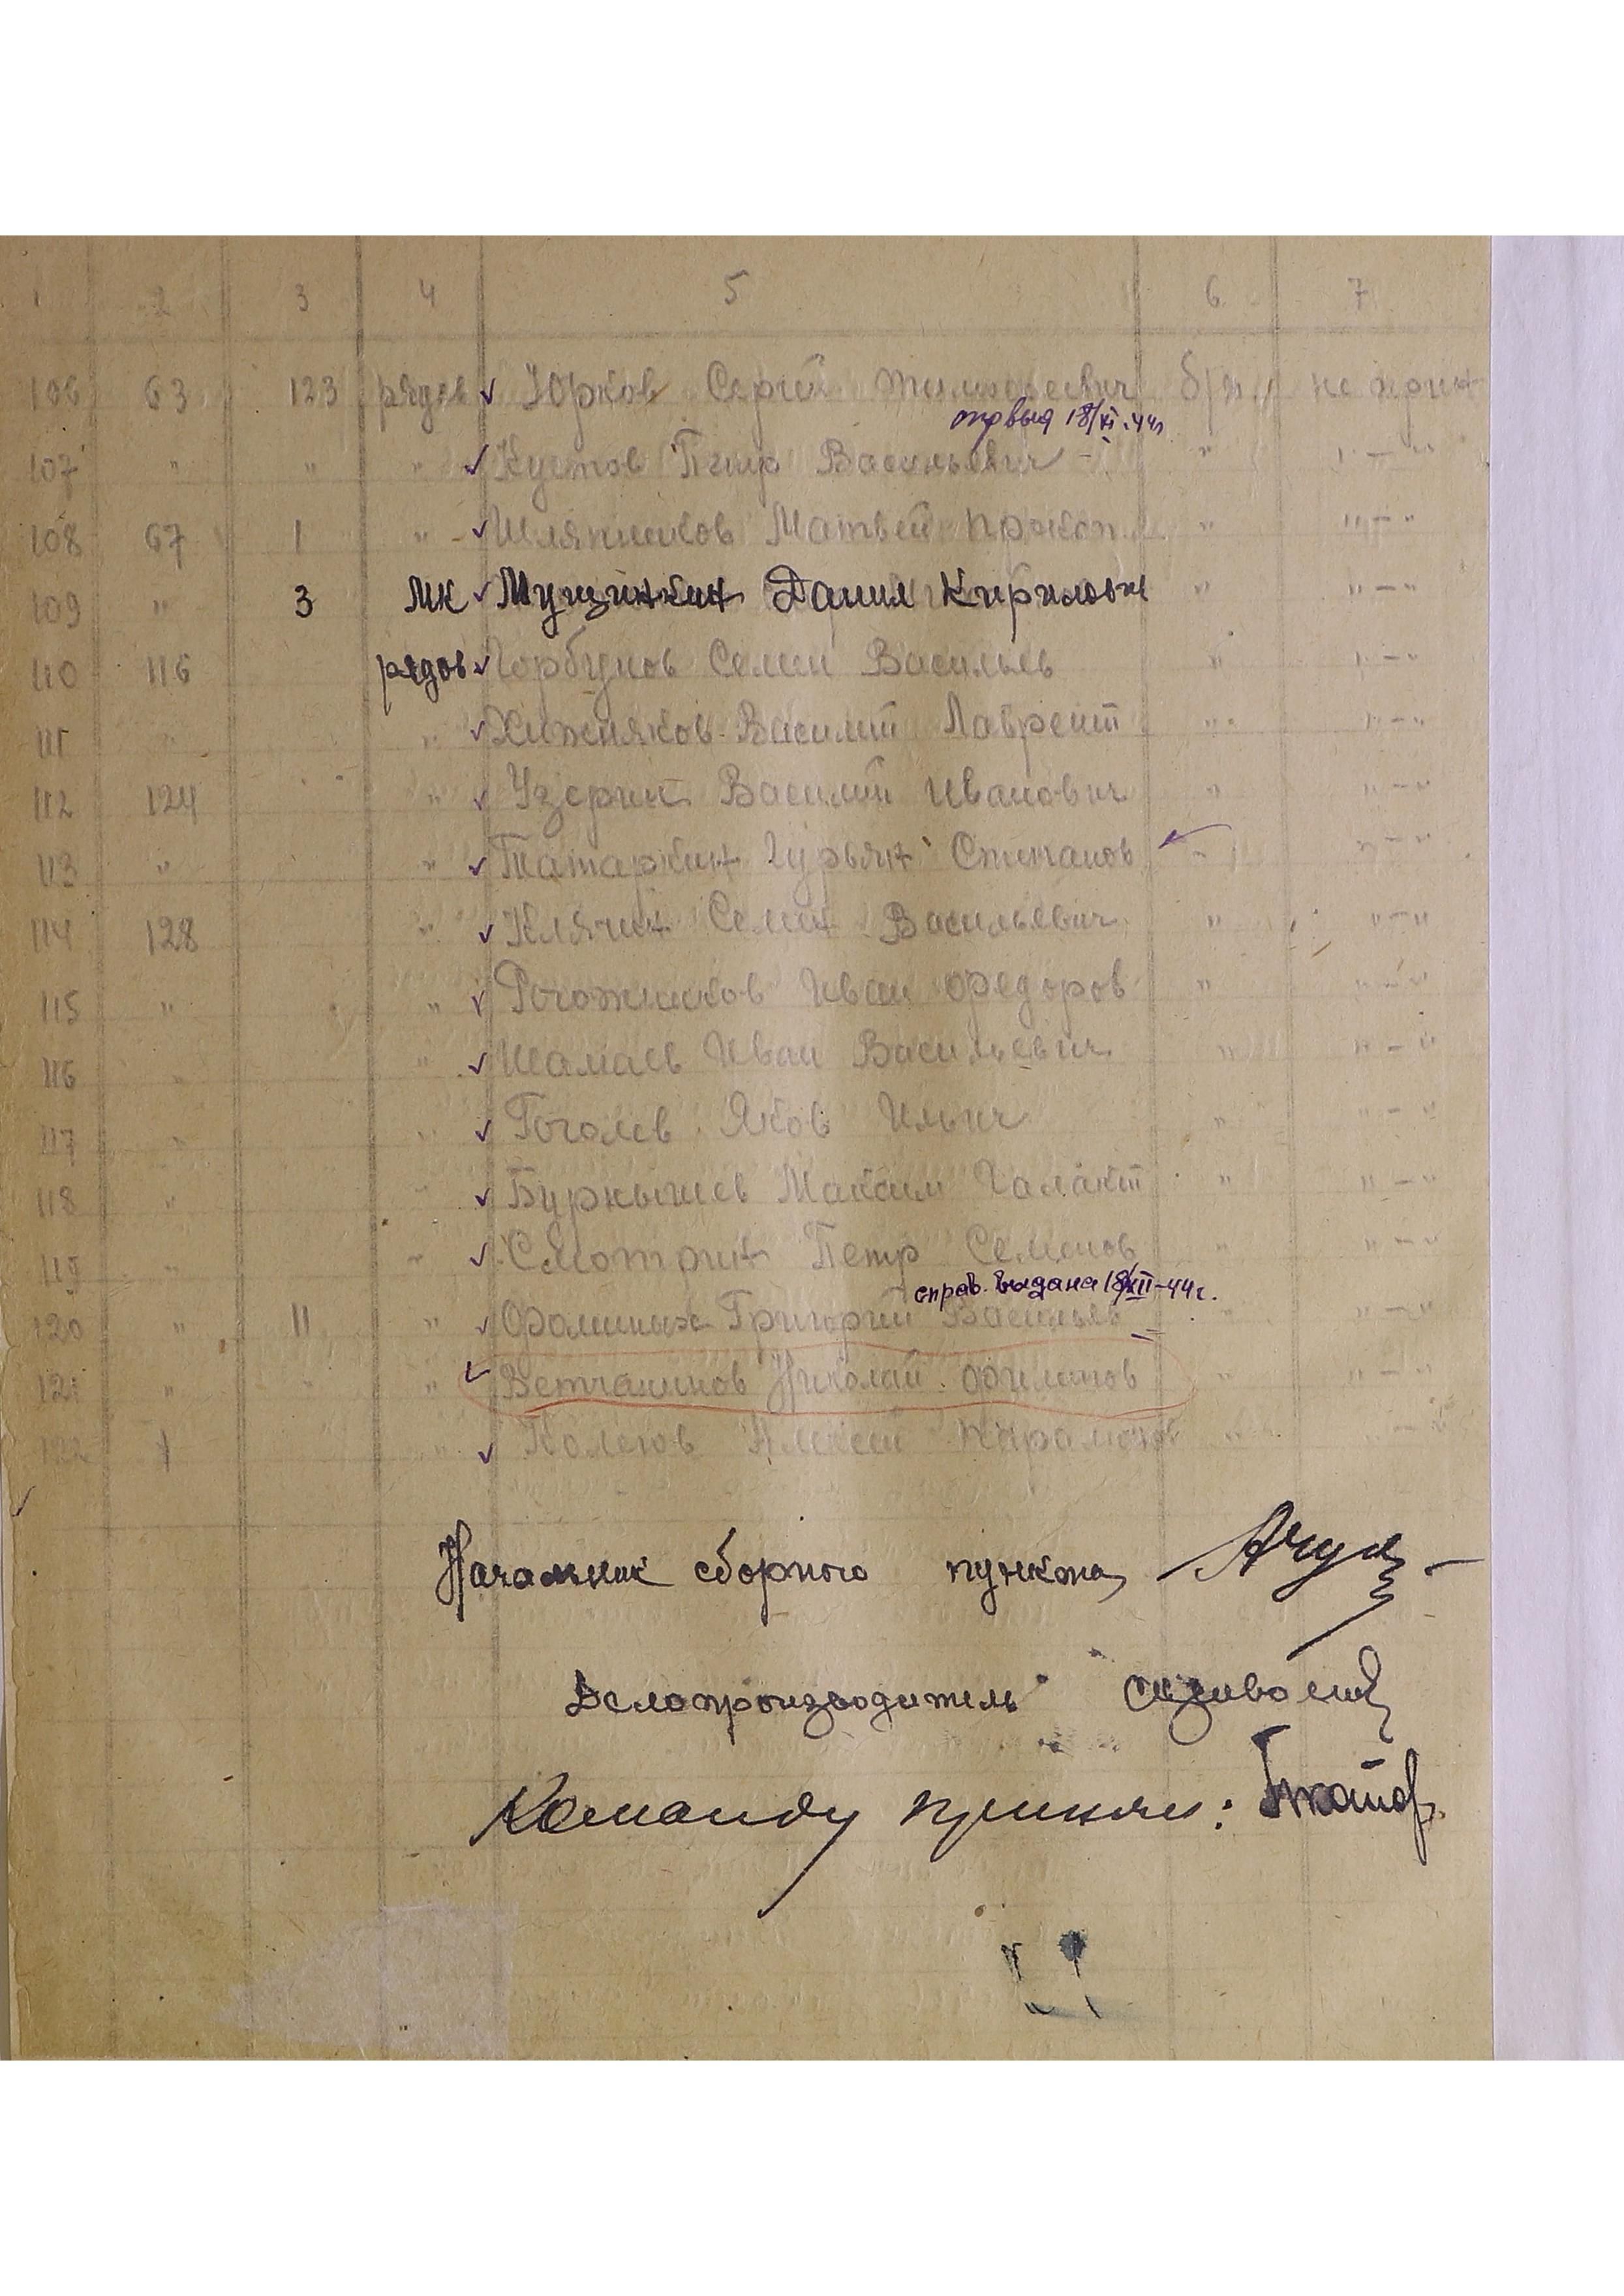 1 2 3 4 5 6 7
106 63 123 рядов Юрков Сергей Тимофеевич б/п
18/XI-44г
107 " " " Кустов Петр Васильевич " "-"
108 67 1 " Шляпников Матвей Прокоп. " "-"
109 " 3 МК Мущинкин Данил Кирилович " "-"
110 116 рядов Горбунов Семен Васильев " "-"
111 " " Хижняков Василий Лаврент " "-"
112 124 " Узерин Василий Иванович " "-"
113 " " Татаркин Гурьян Степанов " "-"
114 128 " Клячин Семен Васильевич " "-"
115 " " Рогожников Иван Федоров " "-"
116 " " Шамаев Иван Васильевич " "-"
117 " " Гоголев Яков Ильич " "-"
118 " " Бурнышев Максим Галакт " "-"
119 " " Смотрин Петр Семенов " "-"
справ. выдана 18/XII-44г.
120 " 11 " Фоминых Григорий Васильев " "-"
121 " " " Ветчанинов Николай Филипов " "-"
122 " Алексей " "-"
Начальник сборного пункта
Делопроизводитель
Команду принял: